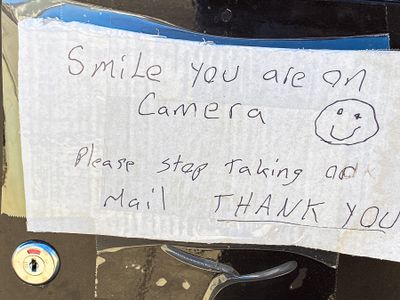 Smile you are on
Camera
Please stop taking
Mail THANK YOU